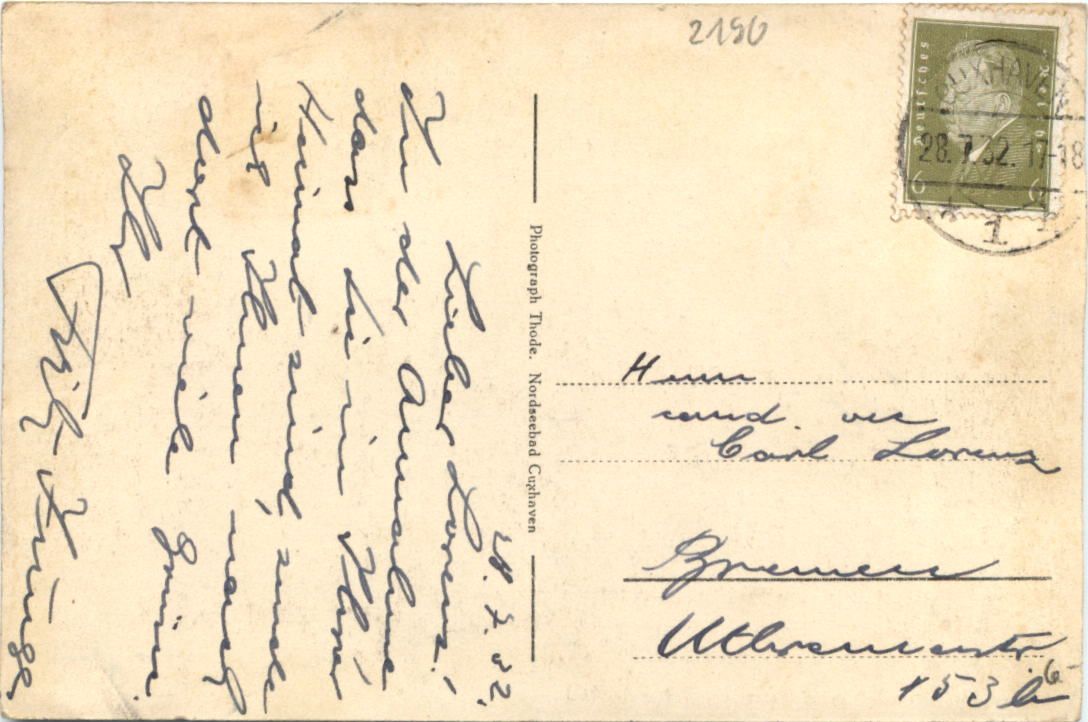 2190
Deutsches Reich
6 6
CUXHAVEN
28.7.32.17-18
* 1
Photograph Thode. Nordseebad Cuxhaven
28.7.32.
Lieber Lorenz!
In der Annahme
dass Sie in Ihrer
Heimat sind, sende
ich Ihnen nach
dort viele Grüsse.
Ihr
Fritz
Herrn
cand.
Carl Lorenz
Bremen
Utbremerstr.
153 b